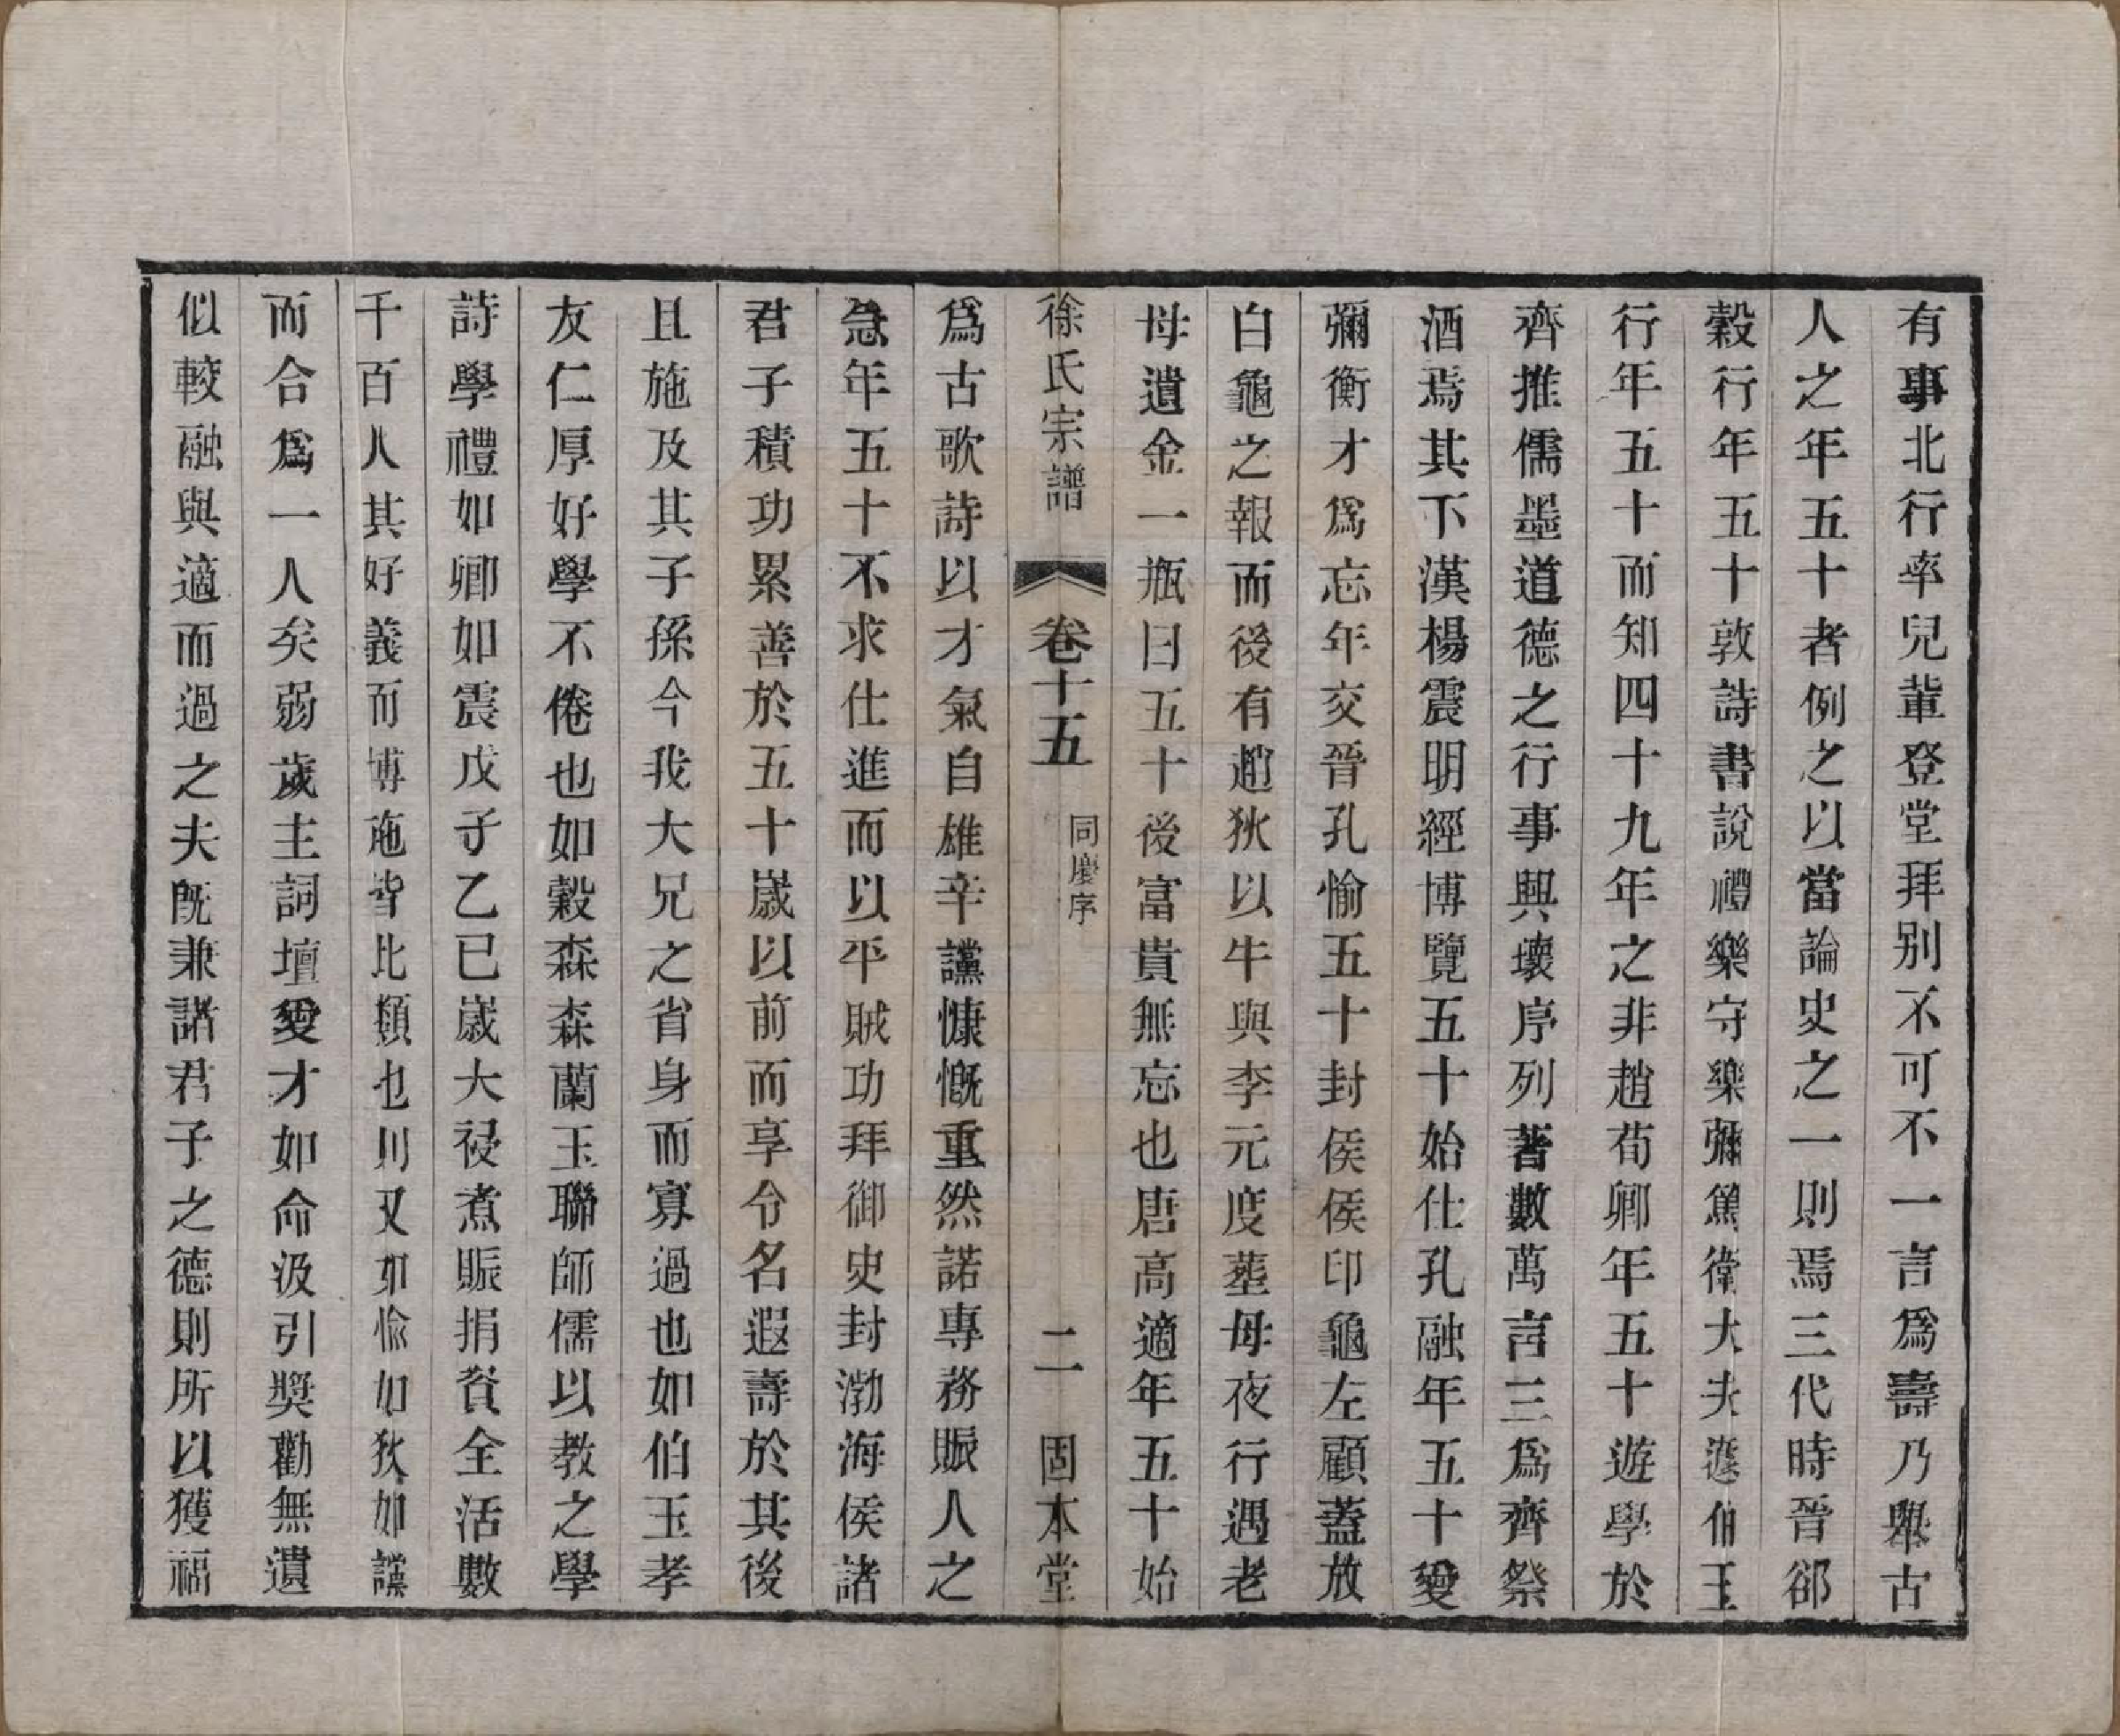 有事北行率兒輩登堂拜别不可不一言爲壽乃舉古
人之年五十者例之以當論史之一則焉三代時晉郤
縠行年五十敦詩書說禮樂守樂彌篤衛大夫蘧伯玉
行年五十而知四十九年之非趙荀卿年五十遊學於
齊推儒墨道德之行事興壞序列著數萬言三爲齊祭
酒焉其下漢楊震明經博覽五十始仕孔融年五十愛
彌衡才爲忘年交晉孔愉五十封侯侯印龜左顧蓋放
白龜之報而後有趙狄以牛與李元度塟母夜行遇老
母遺金一瓶曰五十後富貴無忘也唐高適年五十始
徐氏宗譜
卷十五
同慶序
二
固本堂
爲古歌詩以才氣自雄辛讜慷慨重然諾專務賑人之
急年五十不求仕進而以平賊功拜御史封渤海侯諸
君子積功累善於五十歲以前而享令名遐壽於其後
且施及其子孫今我大兄之省身而寡過也如伯玉孝
友仁厚好學不倦也如縠森森蘭玉聯師儒以教之學
詩學禮如卿如震戊子乙巳歲大祲煮賑捐貲全活數
千百人其好義而博施皆比類也則又如愉如狄如讜
而合爲一人矣弱歲主詞壇愛才如命汲引奬勸無遺
似較融與適而過之夫旣兼諸君子之德則所以獲福